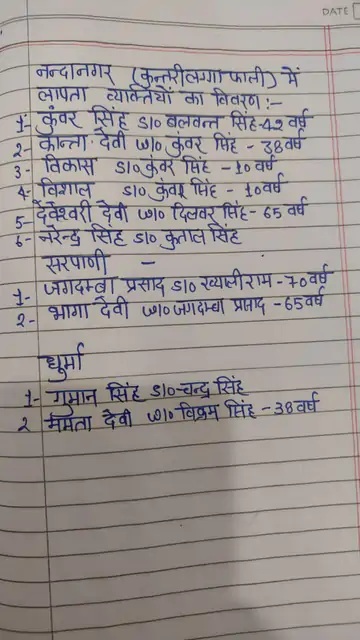 DATE
नन्दानगर (कुन्तरीलगाफाली) में
लापता व्यक्तियों का विवरण:-
1- कुंवर सिंह S/o बलवन्त सिंह-42 वर्ष
2- कान्ता देवी W/o कुंवर सिंह - 38 वर्ष
3- विकास S/o कुंवर सिंह - 10 वर्ष
4- विशाल S/o कुंवर सिंह - 10 वर्ष
5- देवेश्वरी देवी W/o दिलवर सिंह - 65 वर्ष
6- नरेन्द्र सिंह S/o कुताल सिंह
सरपाणी -
1- जगदम्बा प्रसाद S/o ख्यालीराम - 70 वर्ष
2- भागा देवी W/o जगदम्बा प्रसाद - 65 वर्ष
धुर्मा
1- गुमान सिंह S/o चन्द्र सिंह
2 ममता देवी W/o विक्रम सिंह - 38 वर्ष